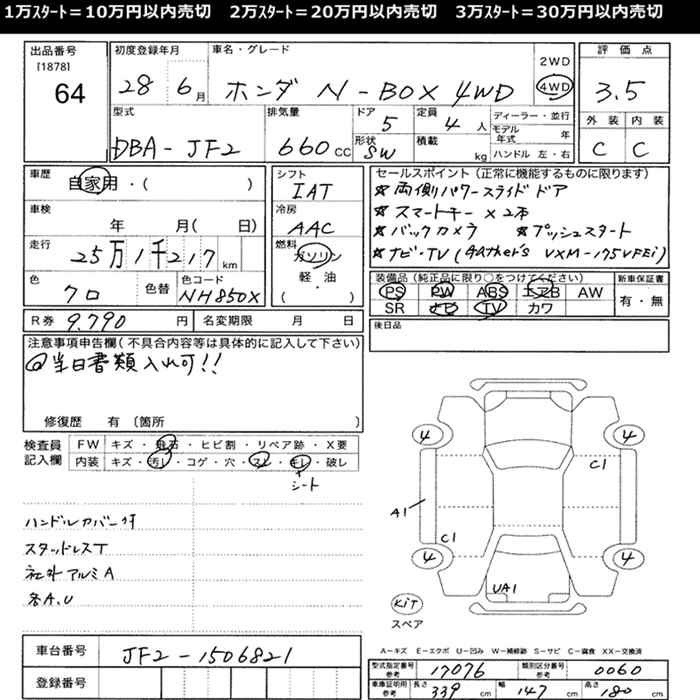 1万スタート=10万円以内売切 2万スタート=20万円以内売切 3万スタート=30万円以内売切
出品番号 初度登録年月 車名・グレード 2WD 評価点
[1878] 64 28 6月 ホンダ N-BOX 4WD 4WD 3.5
型式 排気量 ドア 定員 ディーラー・並行 外装 内装
DBA-JF2 660cc 5 4人 モデル年式 年 C C
形状 SW 積載 kg ハンドル 左・右
車歴 自家用・( ) シフト IAT セールスポイント(正常に機能するものに限ります)
☆両側パワースライドドア
車検 年 月(日) 冷房 AAC ☆スマートキー×2本
☆バックカメラ ☆プッシュスタート
走行 25万1千217km 燃料 ガソリン 軽・油 ( ) ☆ナビ・TV(Gathers VXM-175VFEi)
色 クロ 色替 色コード NH850X 装備品(純正品に限り○をつけてください) 新車保証書
PS PW ABS エアB AW 有・無
SR ナビ TV カワ
R券 9.790円 名変期限 月 日 後日品
注意事項申告欄(不具合内容等は具体的に記入して下さい)
◎当日書類入れ可!!
修復歴 有(箇所 )
検査員記入欄 FW キズ・飛石・ヒビ割・リペア跡・X要
内装 キズ・汚レ・コゲ・穴・スレ・キレ・破レ
シート
ハンドルカバー付
スタッドレスT
社外アルミA
各A.U
4 4
C1
A1
C1
4 4
UA1
KiT
スペア
A-キズ E-エクボ U-凹み W-補修跡 S-サビ C-腐食 XX-交換済
車台番号 JF2-1506821 型式指定番号 参考 17076 類別区分番号 参考 0060
登録番号 車庫証明用 参考 長さ 339cm 幅 147cm 高さ 180cm